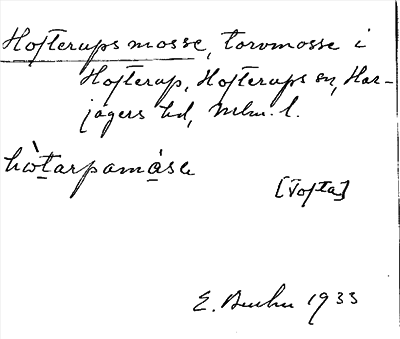 Hofterups mosse, torvmosse i
Hofterup, Hofterups sn, Har-
jagers hd, Mlm. l.
hòtarpamåsa
[Tofta]
E. Buhu 1933